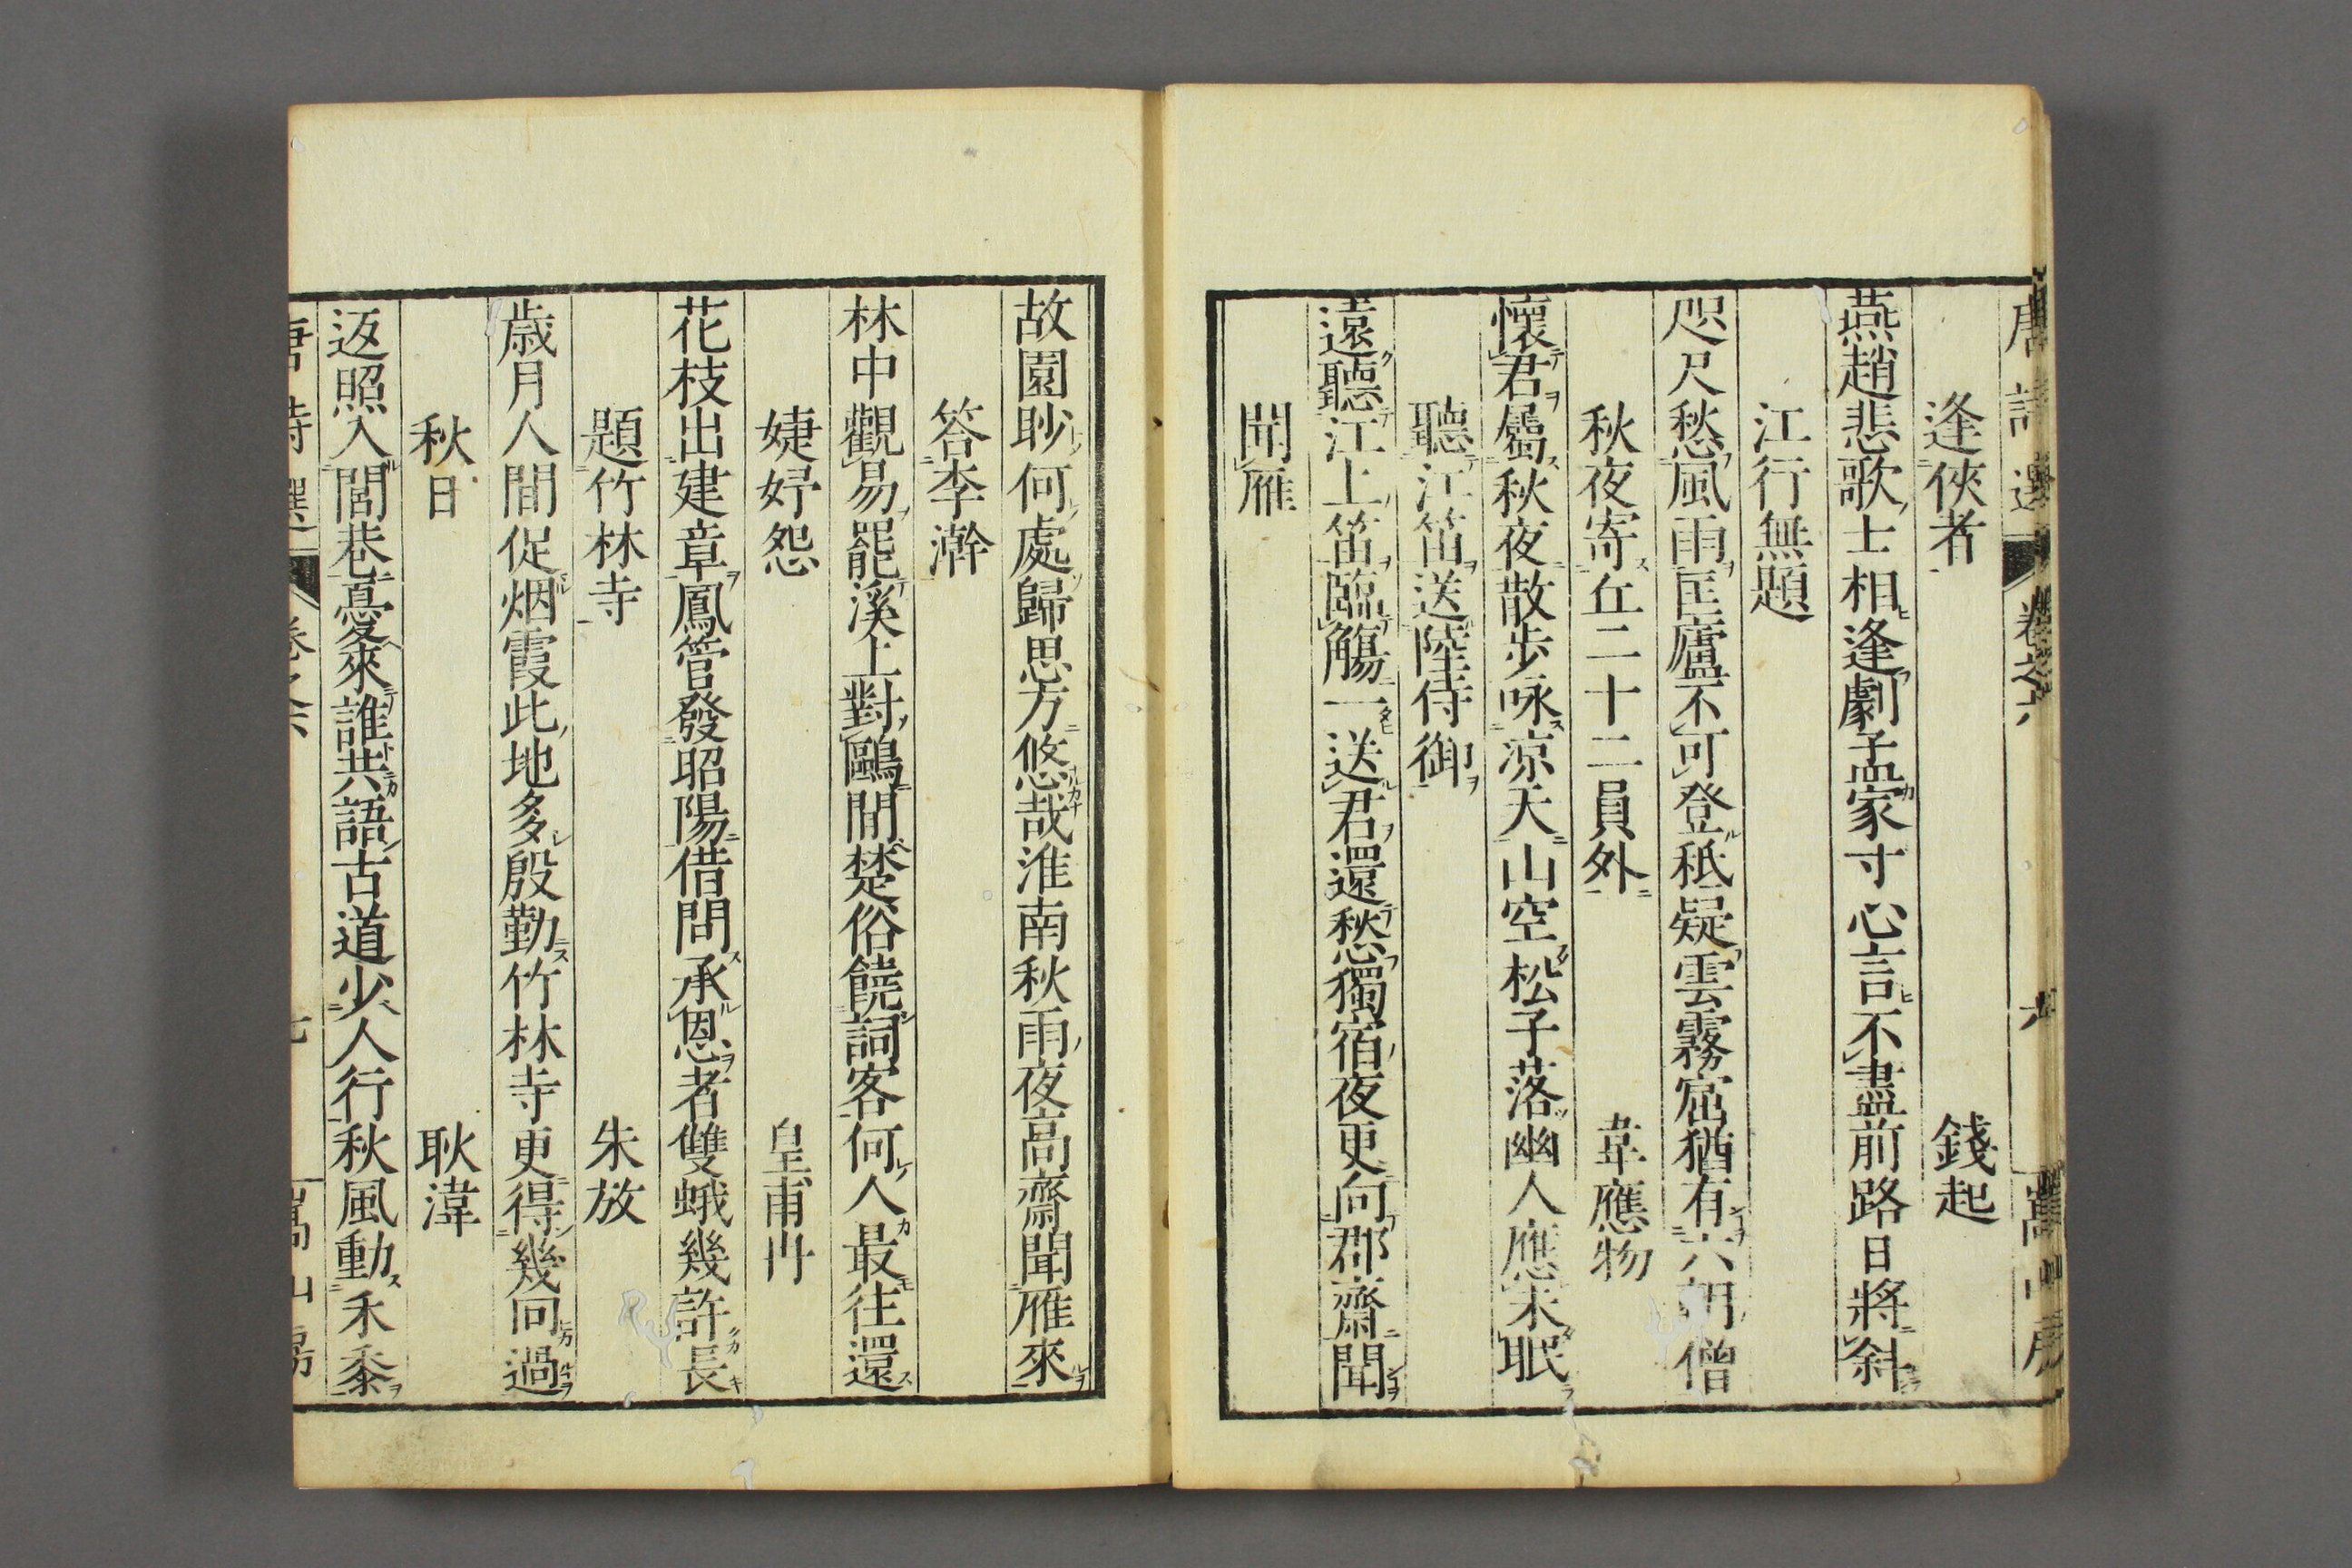 唐詩選 卷之六 六 嵩山房
逢俠者 錢起
燕趙悲歌士相逢劇孟家寸心言不盡前路日將斜
江行無題
咫尺愁風雨匡廬不可登秪疑雲霧窟猶有六朝僧
秋夜寄丘二十二員外 韋應物
懷君屬秋夜散步咏凉天山空松子落幽人應未眠
聽江笛送陸侍御
遠聽江上笛臨觴一送君還愁獨宿夜更向郡齋聞
聞雁
故園眇何處歸思方悠哉淮南秋雨夜高齋聞雁來
答李澣
林中觀易罷溪上對鷗閒楚俗饒詞客何人最往還
婕妤怨 皇甫冉
花枝出建章鳳管發昭陽借問承恩者雙蛾幾許長
題竹林寺 朱放
歲月人間促烟霞此地多殷勤竹林寺更得幾回過
秋日 耿湋
返照入閭巷憂來誰共語古道少人行秋風動禾黍
唐詩選 卷之六 七 嵩山房